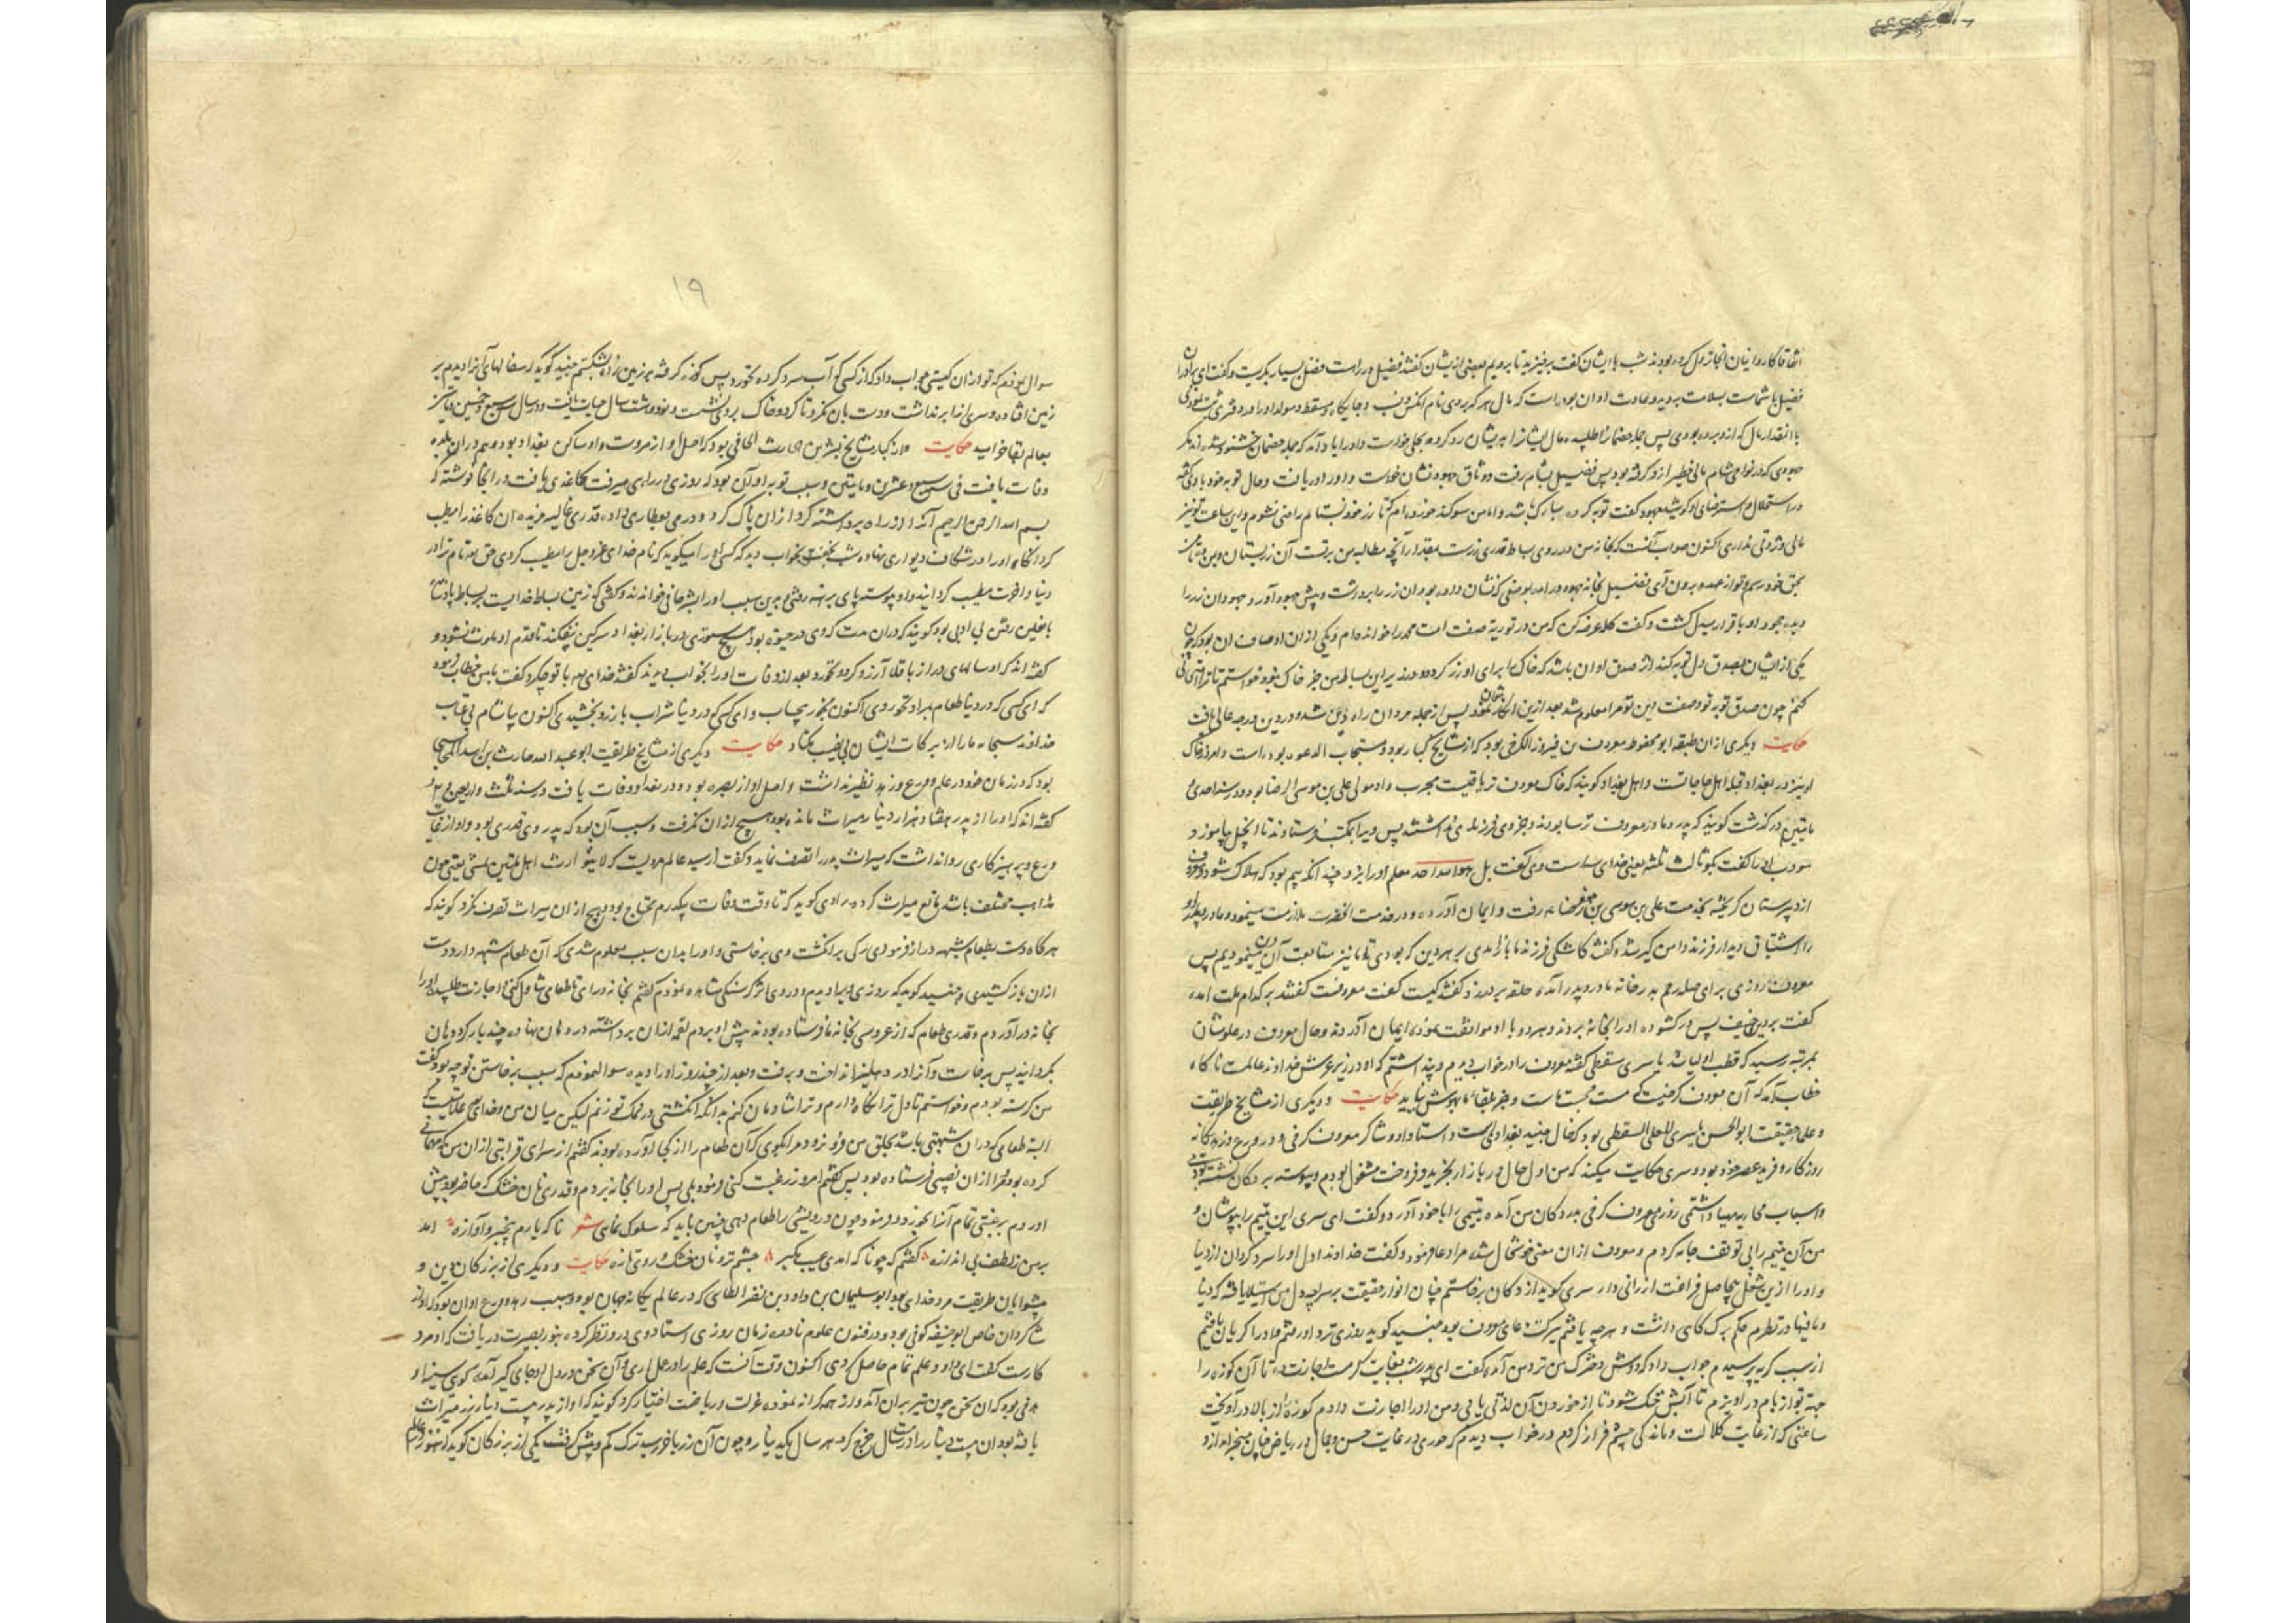 اتفاقا کاروانیان آنجا نزول کرده بودند شب با ایشان گفت برخیزید تا برویم بعضی از یشان گفتند فضیل در راهست فضیل بسیار بگریست و گفت ای برادران
فضیل با شماست بسلامت بروید و عادت او آن بوده است که مال هر که بردی نام انکس و نسب و جایگاه و مسقط و مولد او را در دفتری ثبت نمودی
با انقدار مال که ازو برده بودی پس جمله خصما را طلبیده مال ایشانرا بدیشان رد کرد و بحلی خواست و او را یاد آمد که جمله خصمان خشنود شده اند مگر
جهودی که در نواحی شام مالی خطیر ازو گرفته بود پس فضیل بشام رفت و وثاق جهود نشان خواست و او را دریافت و حال توبه خود با وی گفته
در استحلال و استرضای او کوشید جهود گفت توبه کرده مبارک باشد و اما من سوگند خورده ام که تا زر خود نستانم راضی نشوم و این ساعت تو نیز
مالی و ثروتی نداری اکنون صواب آنست که بخانه من در روی بساط قدری زرست بمقدار آنچه مطالبه من برتست آن زر بستان و بمن ده تا من
بحق خود رسم و تو از عهده برون آی فضیل بخانه جهود درامد بموضعی که نشان داده بود آن زر را برداشت و پیش جهود آورد جهود آن زر را
دید جهود او باقرار بیدل گشت و گفت کلمه عرضه کن که من در توریة صفت امت محمد را خوانده ام و یکی از ان اوصاف ان بود که چون
یکی از ایشان بصدق دل توبه کند اثر صدق او ان باشد که خاک برای او زر گردد و در زیر این بساط من جز خاک نبود خواستم تا ترا امتحانی
کنم چون صدق توبه تو و صفت دین تو مرا معلوم شد بعد ازین انکار نتوان نمود پس از جمله مردان راه دین شد و در دین درجه عالی یافت
حکایت دیگری از ان طبقه ابو محفوظ معروف بن فیروز الکرخی بود که از مشایخ کبار بود و مستجاب الدعوه بوده است و امروز خاک
او نیز در بغداد قبله اهل حاجاتست و اهل بغداد گویند که خاک معروف تریاقیست مجرب و او مولی علی بن موسی الرضا بود و در سنه احدی و
مایتین درگذشت گویند که پدر و مادر معروف ترسا بودند و بجز وی فرزندی نداشتند پس ویرا بمکتب فرستادند تا انجیل بیاموزد و
مودب او را گفت بگو ثالث ثلثه یعنی خدای سه است وی گفت بل هو الله احد معلم او را بزد چندانکه بیم بود که هلاک شود و معروف
از دیرستان گریخته بخدمت علی بن موسی بن جعفر رضا ء رفت و ایمان آورده و در خدمت انحضرت ملازمت مینمود و مادر و پدر او
را اشتیاق دیدار فرزند دامن گیر شده گفتند کاشکی فرزند ما باز امدی بر هر دین که بودی تا ما نیز متابعت آن دین مینمودیم پس
معروف روزی برای صله رحم بدر خانه مادر و پدر آمده حلقه بر در زد گفتند کیست گفت معروفست گفتند بر کدام ملت امده
گفت بر دین حنیف پس در گشوده او را بخانه بردند و هر دو با او موافقت نموده ایمان آوردند و حال معروف در علو شان
بمرتبه رسید که قطب اولیا شد یا سری سقطی گفته معروف را در خواب دیدم و پنداشتم که او در زیر عرش خداوند عالمست ناگاه
خطاب آمد که آن معروف کرخیست که مست محبت ماست و بجز بلقاء ما بهوش نیاید حکایت و دیگری از مشایخ طریقت
و علماء حقیقت ابو الحسن یا سری المغلس السقطی بود که خال جنید بغدادیست و استاد او و شاگرد معروف کرخی و در ورع و زهد یگانه
روزگار و فرید عصر خود بود و سری حکایت میکند که من اول حال در بازار بخرید و فروخت مشغول بودم و پیوسته بر دکان نشسته بودمی
و اسباب محاربه مهیا داشتمی روزی معروف کرخی بدر دکان من آمد و یتیمی را با خود آورد و گفت ای سری این یتیم را بپوشان و
من آن یتیم را بی توقف جامه کردم و معروف از ان معنی خوشحال شده مرا دعا فرمود و گفت خداوندا دل او را سرد گردان از دنیا
و او را ازین شغل بیحاصل فراغت ارزانی دار سری گوید از دکان برخاستم چنان انوار حقیقت بر سراچه دل من استیلا یافته که دنیا
و مافیها در نظرم حکم برک کاهی داشت و هر چه یافتم ببرکت دعای معروف بود جنید گوید روزی نزد او رفتم و او را گریان یافتم
از سبب گریه پرسیدم جواب داد که دوش دخترک من نزد من آمده گفت ای پدر شب بغایت گرمست اجازت ده تا آن کوزه را
جهة تو از بام در آویزم تا آبش خنک شود تا از خوردن آن لذتی یابی و من او را اجازت دادم کوزه را از بالا در آویخت
ساعتی که از غایت کلالت و ماندگی چشم فراز کردم در خواب دیدم که حوری در غایت حسن و جمال در ریاض جنان میخرامد ازو
۱۹
سوال نمودم که تو از ان کیستی جواب داد که از کسی که آب سرد کرده نخورد پس کوزه گرفته بر زمین زد و بشکستم جنید گوید که سفالهای آنرا دیدم بر
زمین افتاده و سری انرا برنداشت و دست بان نکرد تا گرد و خاک بر وی نشست و نود و هشت سال حیات یافت و در سال سبع و خمین و مایتین
بعالم بقا خرامید حکایت و از کبار مشایخ بشر بن حارث الحافی بود که اصل او از مروست و او ساکن بغداد بوده و هم در ان بلده
وفات یافت فی سبع و عشرین و مایتین و سبب توبه او آن بود که روزی در راهی میرفت کاغذی یافت در انجا نوشته که
بسم الله الرحمن الرحیم آنرا از راه برداشته گرد از ان پاک کرد و درمی بعطاری داده قدری غالیه خریده ان کاغذ را مطیب
کرد انگاه او را در شکاف دیواری نهاده شب بخفت بخواب دید که کسی او را میگوید که نام خدای عز و جل را مطیب کردی حق تعه نام ترا در
دنیا و اخرت مطیب گردانید و او پیوسته پای برهنه رفتی و بدین سبب او را بشر حافی خوانند و گفتی که زمین بساط خدایست بر بساط پادشاه
با نعلین رفتن بی ادبی بود گویند که در ان مدت که وی در حیوة بود هیچ ستوری در بازار بغداد سرگین نیفکند تا قدم او ملوث نشود و
گفته اند که او سالهای دراز باقلا آرزو کرد و نخورد بعد از وفات او را بخواب دیدند گفتند خدای تعه با تو چکرد گفت با من خطاب فرمود
که ای کسی که در دنیا طعام بمراد نخوردی اکنون بخور بیحساب و ای کسی که در دنیا شراب بارزو نچشیدی اکنون بیاشام بی عتاب
خداوند سبحانه ما را از برکات ایشان بی نصیب مکناد حکایت دیگری از مشایخ طریقت ابو عبد الله حارث بن اسد المحاسبی
بود که در زمان خود در علم و ورع و زهد نظیر نداشت و اصل او از بصره بوده و در بغداد وفات یافت در سنه ثلث و اربعین و ۲
گفته اند که او را از پدر هفتاد هزار دینار میراث مانده بود هیچ از ان نگرفت و سبب آن بود که پدر وی قدری بود و او از غایت
ورع و پرهیزکاری روا نداشت که میراث پدر را تصرف نماید و گفت از سید عالم مرویست که لا یتوارث اهل ملتین بشئ یعنی چون
مذاهب مختلف باشد مانع میراث گردد راوی گوید که تا وقت وفات بیکدرم محتاج بود و هیچ از ان میراث تصرف نکرد گویند که
هرگاه دست بطعام شبهه دراز فرمودی رکی بر انگشت وی برخاستی و او را بدان سبب معلوم شدی که آن طعام شبهه دارد دست
از ان باز کشیدی و جنید گوید که روزی ویرا دیدم و در وی اثر گرسنگی مشاهده نمودم گفتم بخانه درای تا طعامی تناول کنی و اجازت طلبیده او را
بخانه در آوردم و قدری طعام که از عروسی بخانه ما فرستاده بودند پیش او بردم لقمه از ان برداشته در دهان نهاده چند بار گرد دهان
بگردانید پس برخاست و آنرا در دهلیز انداخت و برفت و بعد از چند روز او را دیده سوال نمودم که سبب برخاستن تو چه بود گفت
من گرسنه بودم و خواستم تا دل ترا نگاه دارم و ترا شادمان کنم بدانکه انگشتی در نمک تو زنم لیکن میان من و خدای علامتیست که
البته طعامی که در ان شبهتی باشد بحلق من فرو نرود مرا بگوی که آن طعام را از کجا آورده بودند گفتم از سرای قرابتی از ان من که مهمانی
کرده بود و مرا از ان نصیبی فرستاده بود پس گفتم امروز رغبت کنی فرمود بلی پس او را بخانه بردم و قدری نان خشک که حاضر بود پیش
اوردم برغبتی تمام آنرا بخورد و فرمود چون درویشی را طعام دهی چنین باید که سلوک نمایی شعر ناگه یارم بیخبر و آوازه امد
بر من ز لطف بی اندازه گفتم که چو ناگه امدی عیب مگیر چشم تر و نان خشک و روی تازه حکایت و دیگری از بزرگان دین و
پیشوایان طریقت مرد خدای بود ابو سلیمان بن داود بن نصر الطائی که در عالم یگانه جهان بود و سبب زهد و ورع او ان بود که او از
شاگردان خاص ابو حنیفه کوفی بود و در فنون علوم نادره زمان روزی استاد وی در و نظر کرده بنور بصیرت دریافت که او مرد
کارست گفت ای داود علم تمام حاصل کردی اکنون وقت آنست که علم را در عمل اری و آن سخن در دل او جای گیر آمده گویی سینه او
هدفی بود که ان سخن چون تیر بران آمد و از همه کرانه نموده عزلت و ریاضت اختیار کرد گویند که او از پدر بیست دینار زر میراث
یافته بود ان بیست دینار را در بیست سال خرج کرد هر سال یکدینار و چون آن زر باخر رسید ترک کم و بیش گرفت یکی از بزرگان گوید که